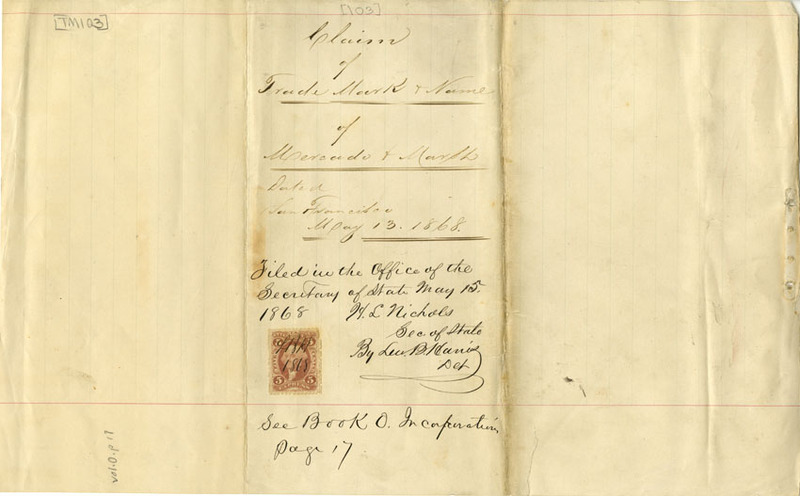 TM103
[103]
Claim
of
Trade Mark & Name
of
Mercado &
Dated
San Francisco
May 13. 1868.
Filed in the Office of the
Secretary of State May 15.
1868 H. L. Nichols
Sec of State
By B.
Dep
5 5
1868
See Book O. Incorporations,
Page 17
Vol-O-p 17